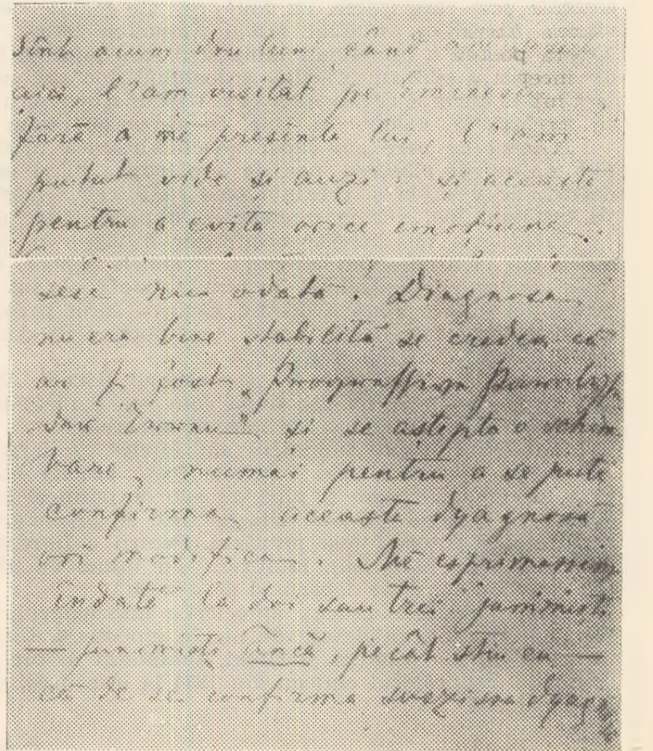 Sînt acum dou luni, când
aici, l'am visitat pe Eminescu
fără a mĕ presinta lui, l'am
putut vide și auzi: și aceasta
pentru a evita orice emoțiune.
sese nici odată. Diagnosa,
nu era bine stabilită se credea că
ar fi fost „Progressive Paralyse
der Irren" și se aștepta o schim
bare, numai pentru a se pute
confirma aceastĕ dyagnosă
ori modifica. Mĕ esprimasem
îndatĕ la doi sau trei junimiști
— junimiști încă, pe cât știu eu —
că de se confirma suszisa dyagn